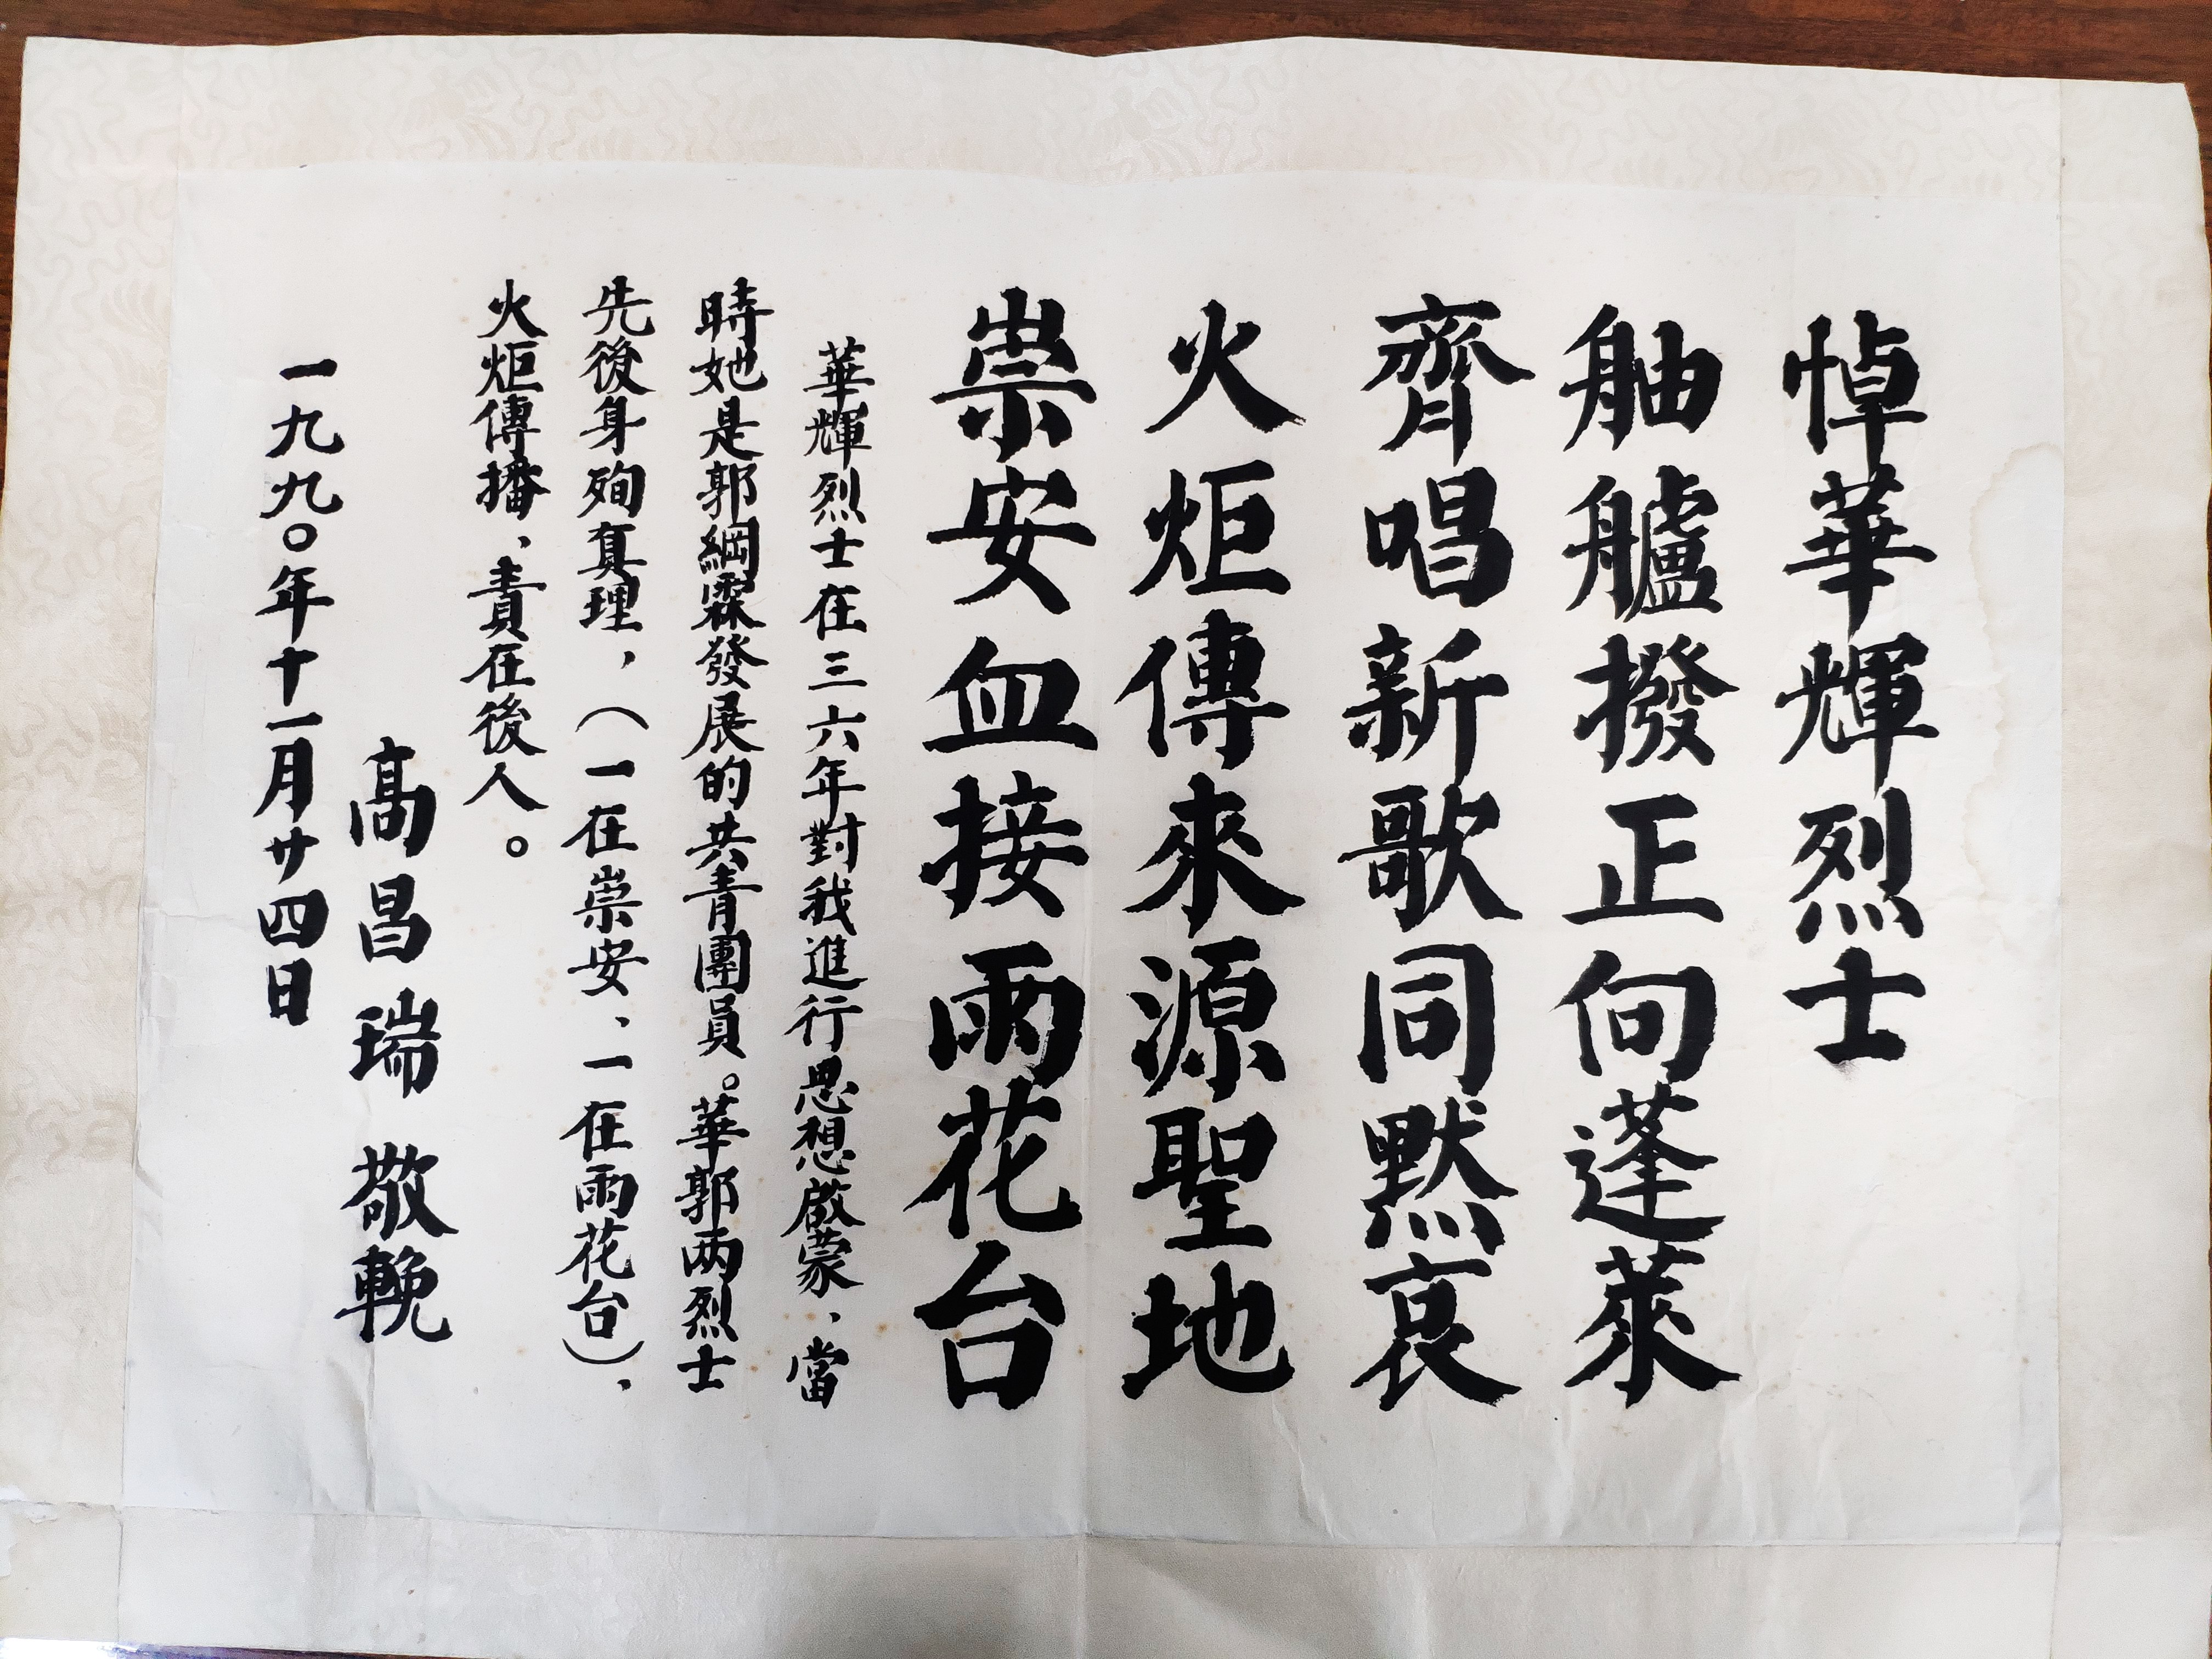 悼華輝烈士
舳艫撥正向蓬萊
齊唱新歌同默哀
火炬傳來源聖地
崇安血接雨花台
華輝烈士在三六年對我進行思想啟蒙、當
時她是郭綱霖發展的共青團員。華郭两烈士
先後身殉真理，（一在崇安、一在雨花台）、
火炬傳播、責在後人。
高昌瑞 敬輓
一九九〇年十一月廿四日